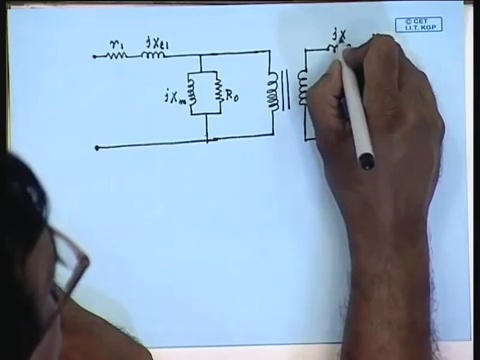 © CET
I.I.T. KGP
r1 jxl1 jx
jxm R0